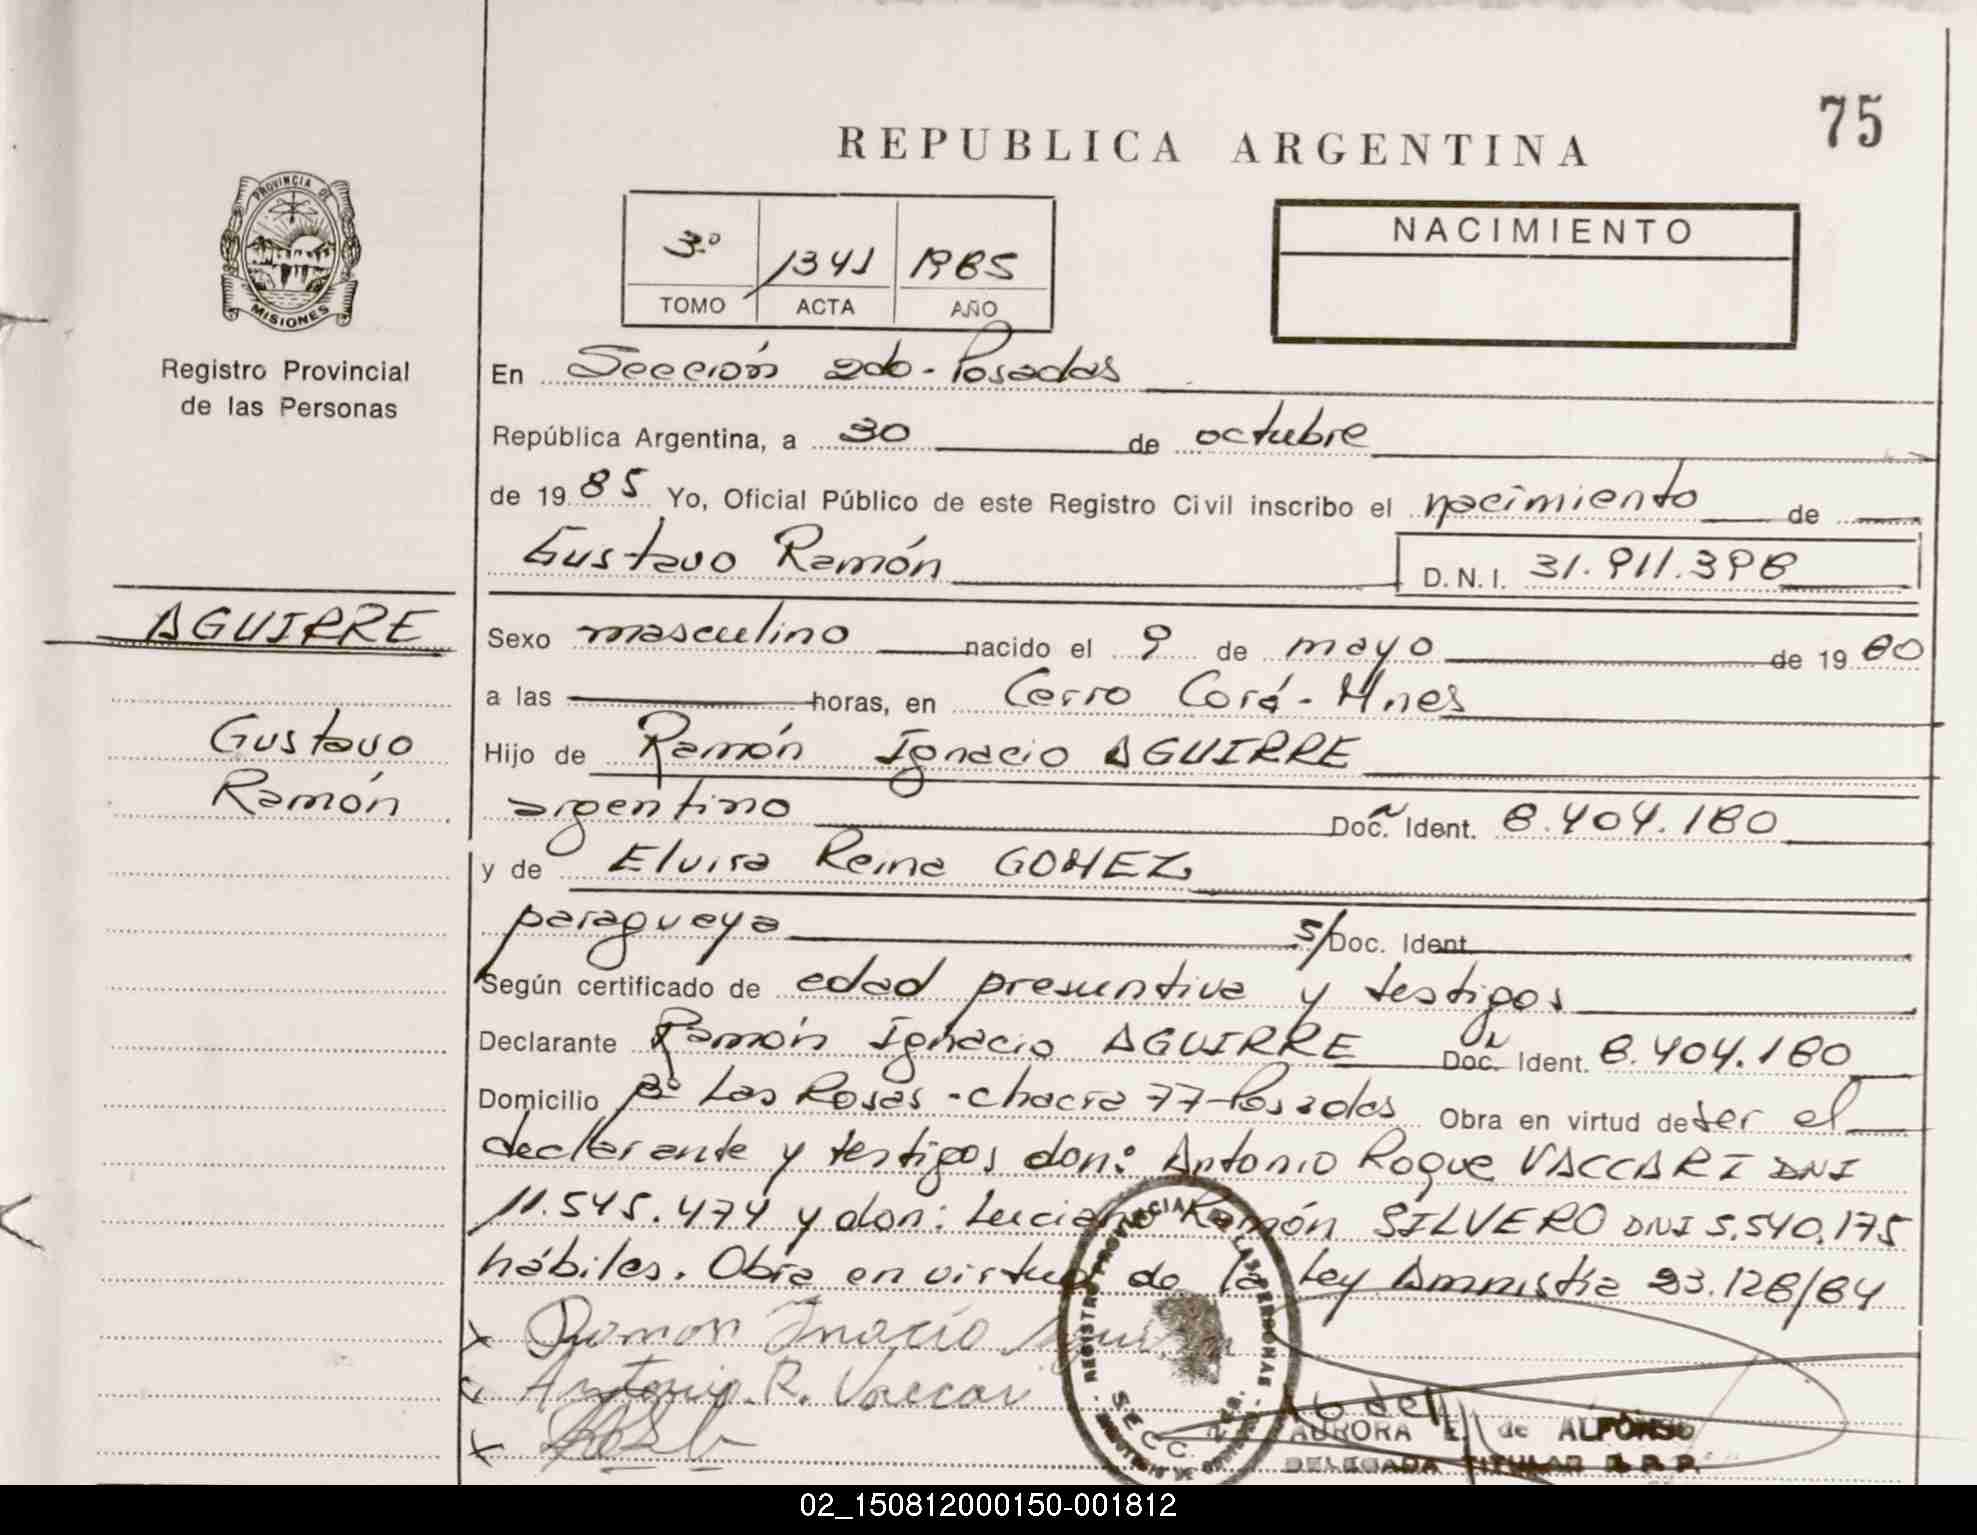 75
REPUBLICA ARGENTINA
PROVINCIA DE
MISIONES
Registro Provincial
de las Personas
3º 1341 1985
TOMO ACTA AÑO
NACIMIENTO
En Sección 2da - Posadas
República Argentina, a 30 de octubre
de 19 85 Yo, Oficial Público de este Registro Civil inscribo el nacimiento de
Gustavo Ramón D.N.I. 31.911.398
AGUIRRE
Gustavo
Ramón
Sexo masculino nacido el 9 de mayo de 19 80
a las horas, en Cerro Corá - Mnes
Hijo de Ramón Ignacio AGUIRRE
argentino Doc. Ident. 8.404.180
y de Elvira Reina GOMEZ
paraguaya s/Doc. Ident.
Según certificado de edad presuntiva y testigos
Declarante Ramón Ignacio AGUIRRE Doc. Ident. 8.404.180
Domicilio Bº Las Rosas - chacra 77 - Posadas Obra en virtud de ser el
declarante y testigos don: Antonio Roque VACCARI DNI
11.545.474 y don: Luciano Ramón SILVERO DNI 5.540.175
hábiles. Obra en virtud de la Ley Amnistía 23.128/84
x Ramon Inacio
Antonio R. Vaccar
x
REGISTRO PROVINCIAL DE LAS PERSONAS
SECC. 2da.
AURORA E. de ALFONSO
DELEGADA TITULAR R.P.P.
02_150812000150-001812